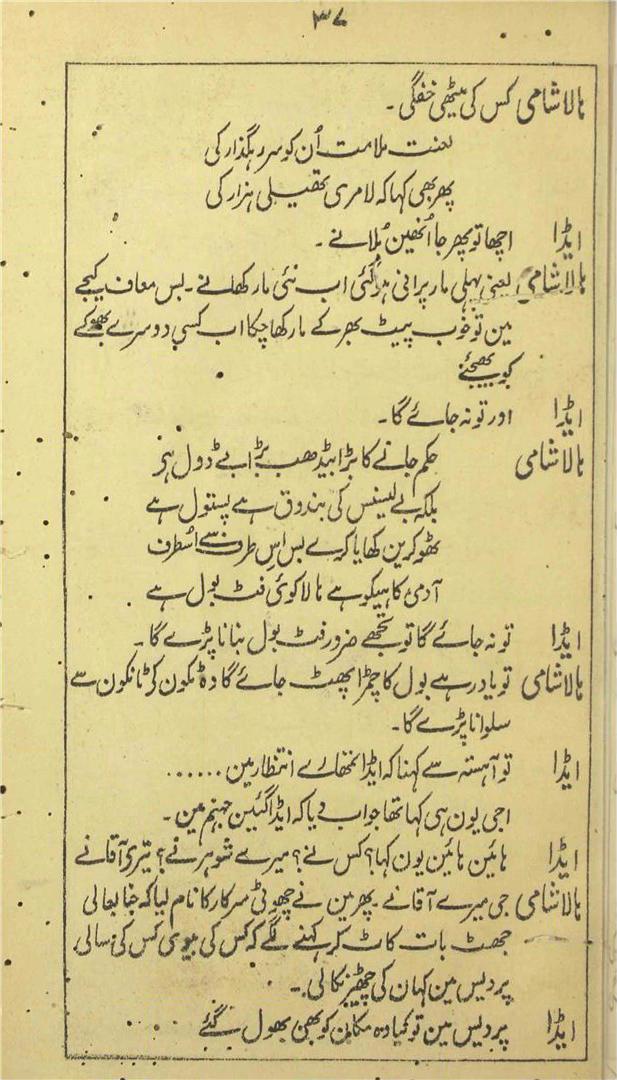 ۳۷
بالاشامی کس کی میٹھی خفگی۔
لعنت ملامت اُن کو سر رہگذار کی
پھر بھی کہا کہ لامری تھیلی ہزار کی
ایڈا اچھا تو پھر جا اُنھین بُلانے۔
بالاشامی یعنی پہلی مار پرانی ہوگئی اب نئی مار کھانے۔ بس معاف کیجے
مین تو خوب پیٹ بھر کے مار کھا چکا اب کسی دوسرے بھوکے
کو بھیجئے
ایڈا اور تو نہ جائے گا۔
بالاشامی حکم جانے کا بڑا بیڈھب بڑا بے ڈول ہے
بلکہ بے لیسنس کی بندوق ہے پستول ہے
ٹھوکرین کھایا کرے بس اِس طرف سے اُسطرف
آدمی کاہیکو ہے بالا کوئی فٹ بول ہے
ایڈا تو نہ جائے گا تو تجھے ضرور فٹ بول بنانا پڑے گا۔
بالاشامی تو یاد رہے بول کا چمڑا پھٹ جائے گا تو ٹانکون سے
سلوانا پڑے گا۔
ایڈا تو آہستہ سے کہنا کہ ایڈا تمھارے انتظار مین ......
اجی یون ہی کہا تھا جواب دیا کہ ایڈا گئین جہنم مین۔
ایڈا ہائین ہائین یون کہا؟ کس نے؟ میرے شوہر نے؟ تیری آقا نے
بالاشامی جی میرے آقا نے۔ پھر مین نے چھوٹی سرکار کا نام لیا کہ جنابعالی
جھٹ بات کاٹ کر کہنے لگے کہ کس کی بیوی کس کی سالی
پردیس مین کہان کی چھیڑ نکالی۔
ایڈا پردیس مین تو کیا وہ مکان کو بھی بھول گئے